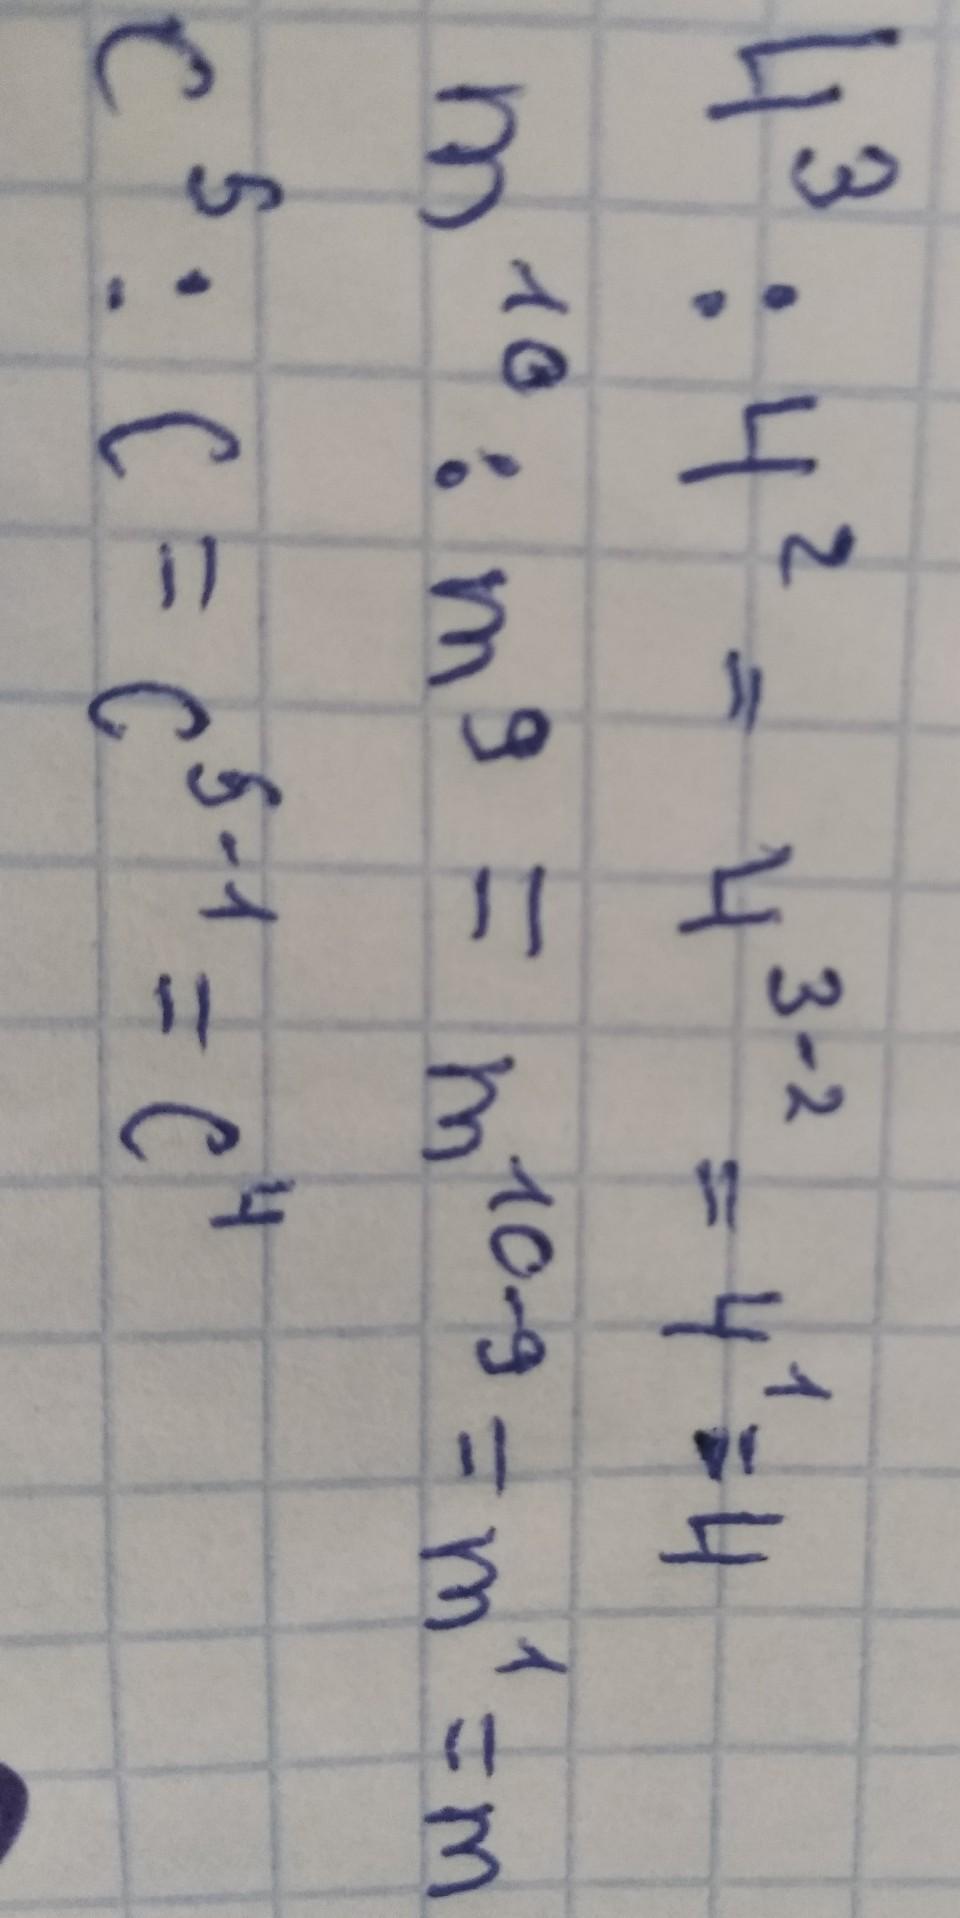 4³ : 4² = 4³⁻² = 4¹ = 4
m¹⁰ : m⁹ = m¹⁰⁻⁹ = m¹ = m
c⁵ : c = c⁵⁻¹ = c⁴